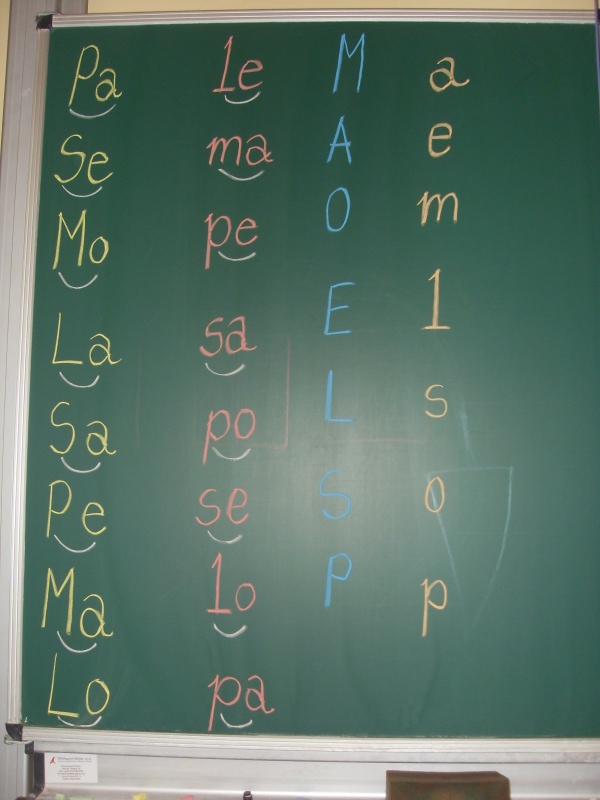 Pa le M a
Se ma A e
Mo pe O m
La sa E l
Sa po L s
Pe se S o
Ma lo P p
Lo pa